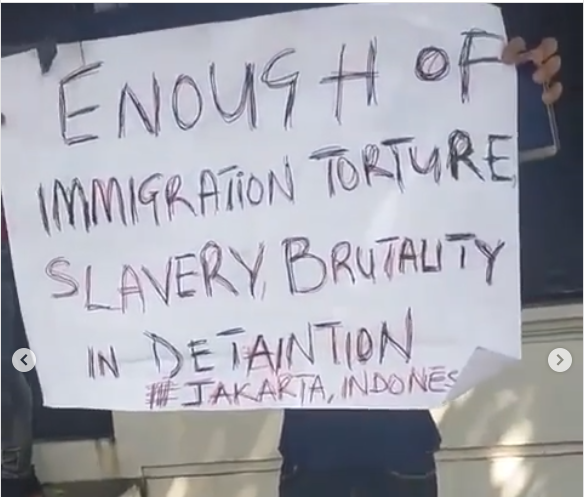 ENOUGH OF
IMMIGRATION TORTURE
SLAVERY, BRUTALITY
IN DETAINTION
#JAKARTA, INDONES